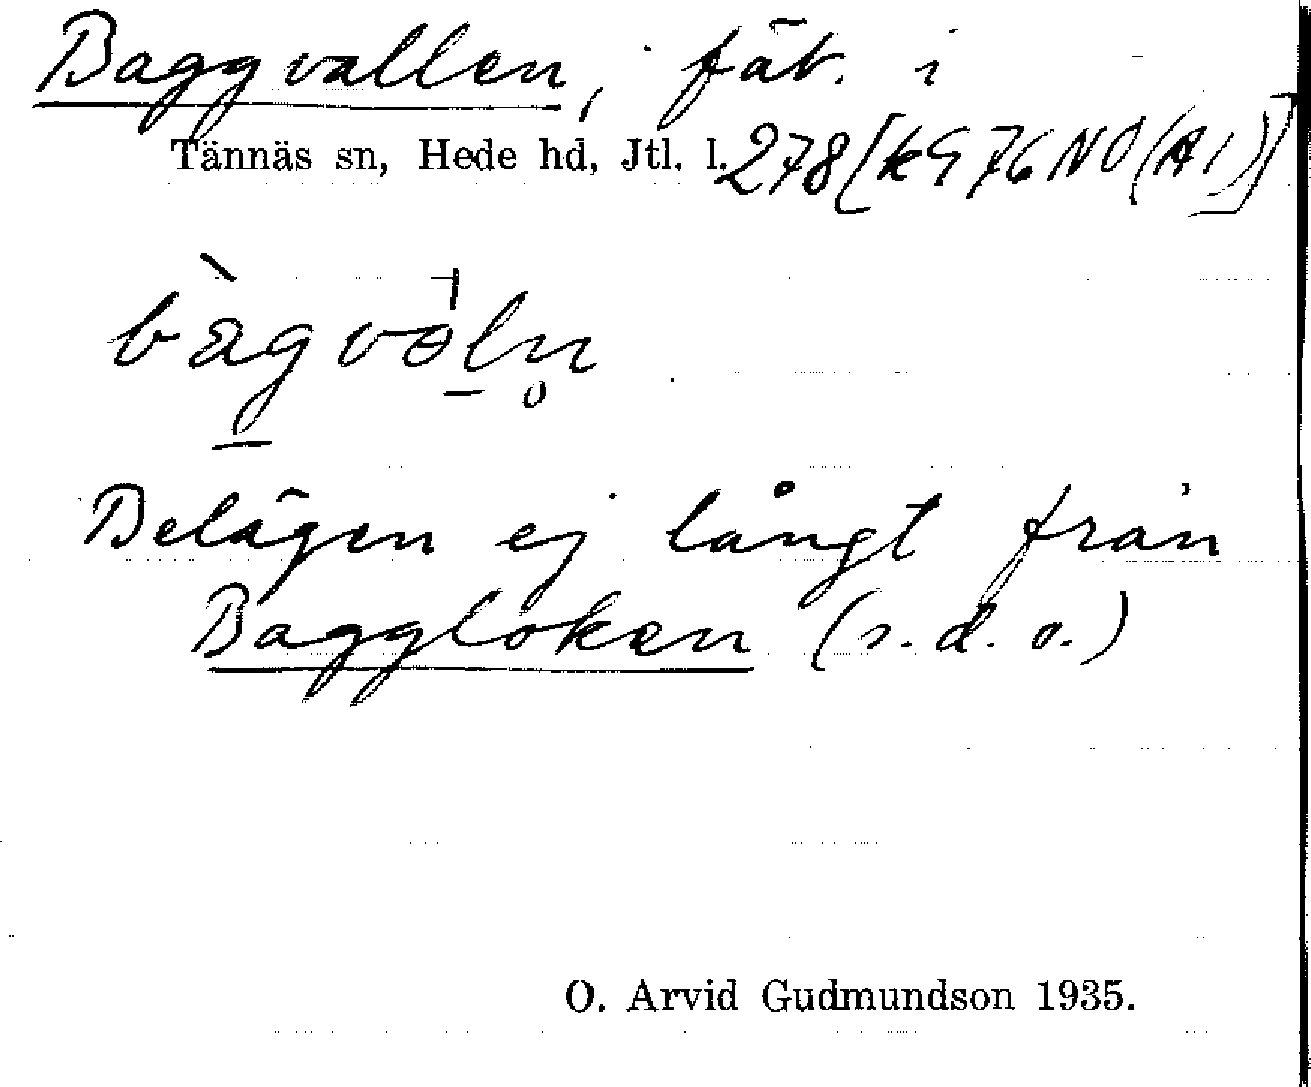 Baggvallen, fäb. i
Tännäs sn, Hede hd, Jtl. l. 278 [k976NO(A1)]
Belägen ej långt från
Baggloken (s.d.o.)
O. Arvid Gudmundson 1935.